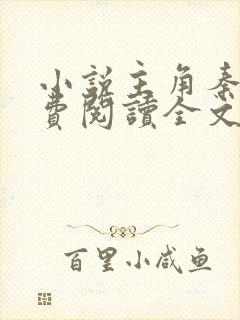 小説主角秦
費閱讀全文
百里小咸鱼